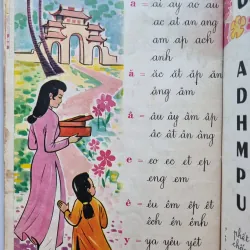 a = ai ay ac au
ac at an ang
am ap ach
anh
ă = ăc ăt ăp ăn
ăng ăm
â = âu ây âm âp
âc ât ân âng
e = eo ec et ep
eng em
ê = êu êm êp êt
êch ên ênh
y = ya yêu yêt
A D H M P U